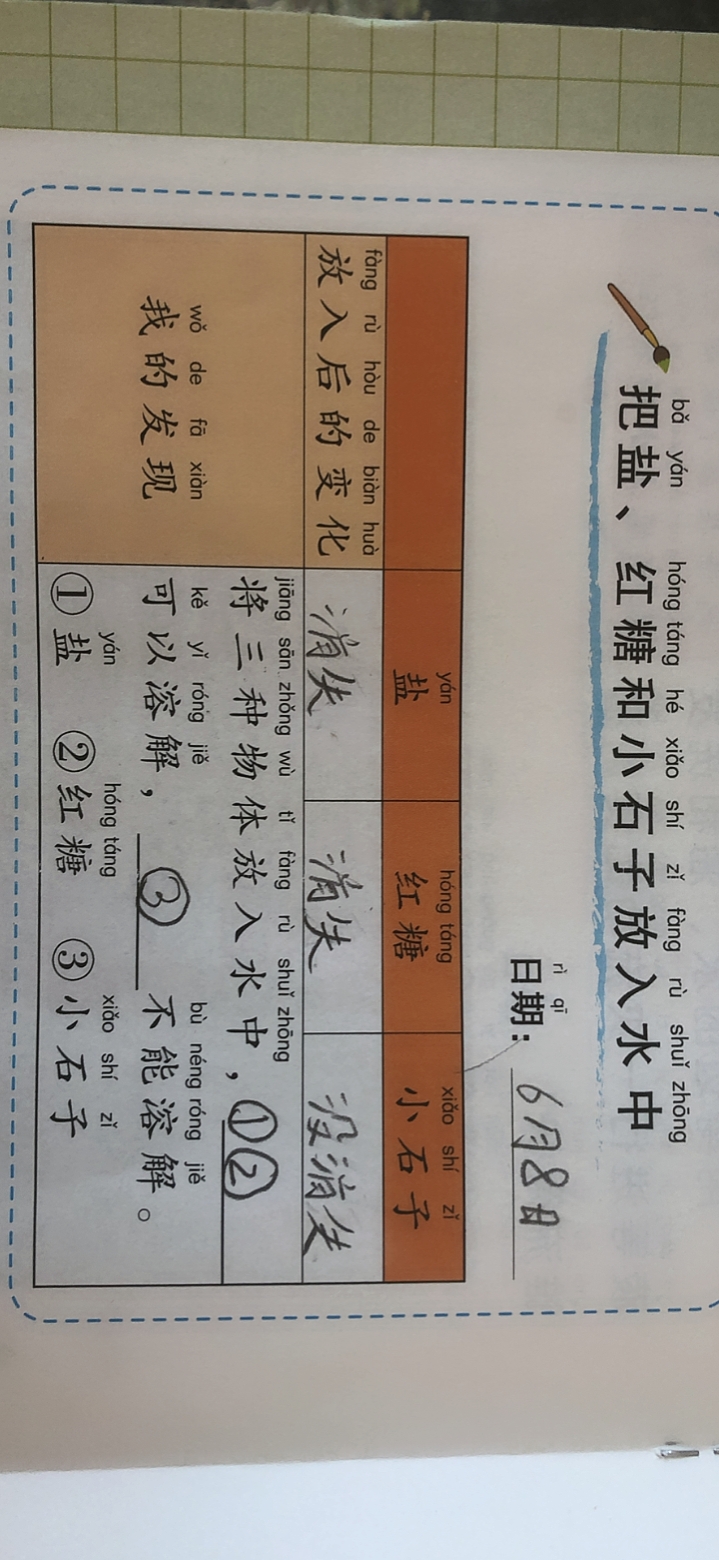 bǎ yán hóng táng hé xiǎo shí zǐ fàng rù shuǐ zhōng
把盐、红糖和小石子放入水中
rì qī
日期：6月8日
yán hóng táng xiǎo shí zǐ
盐 红糖 小石子
fàng rù hòu de biàn huà
放入后的变化 消失 消失 没消失
wǒ de fā xiàn
我的发现
jiāng sān zhǒng wù tǐ fàng rù shuǐ zhōng
将三种物体放入水中，①②
kě yǐ róng jiě bù néng róng jiě
可以溶解，③不能溶解。
yán hóng táng xiǎo shí zǐ
①盐 ②红糖 ③小石子